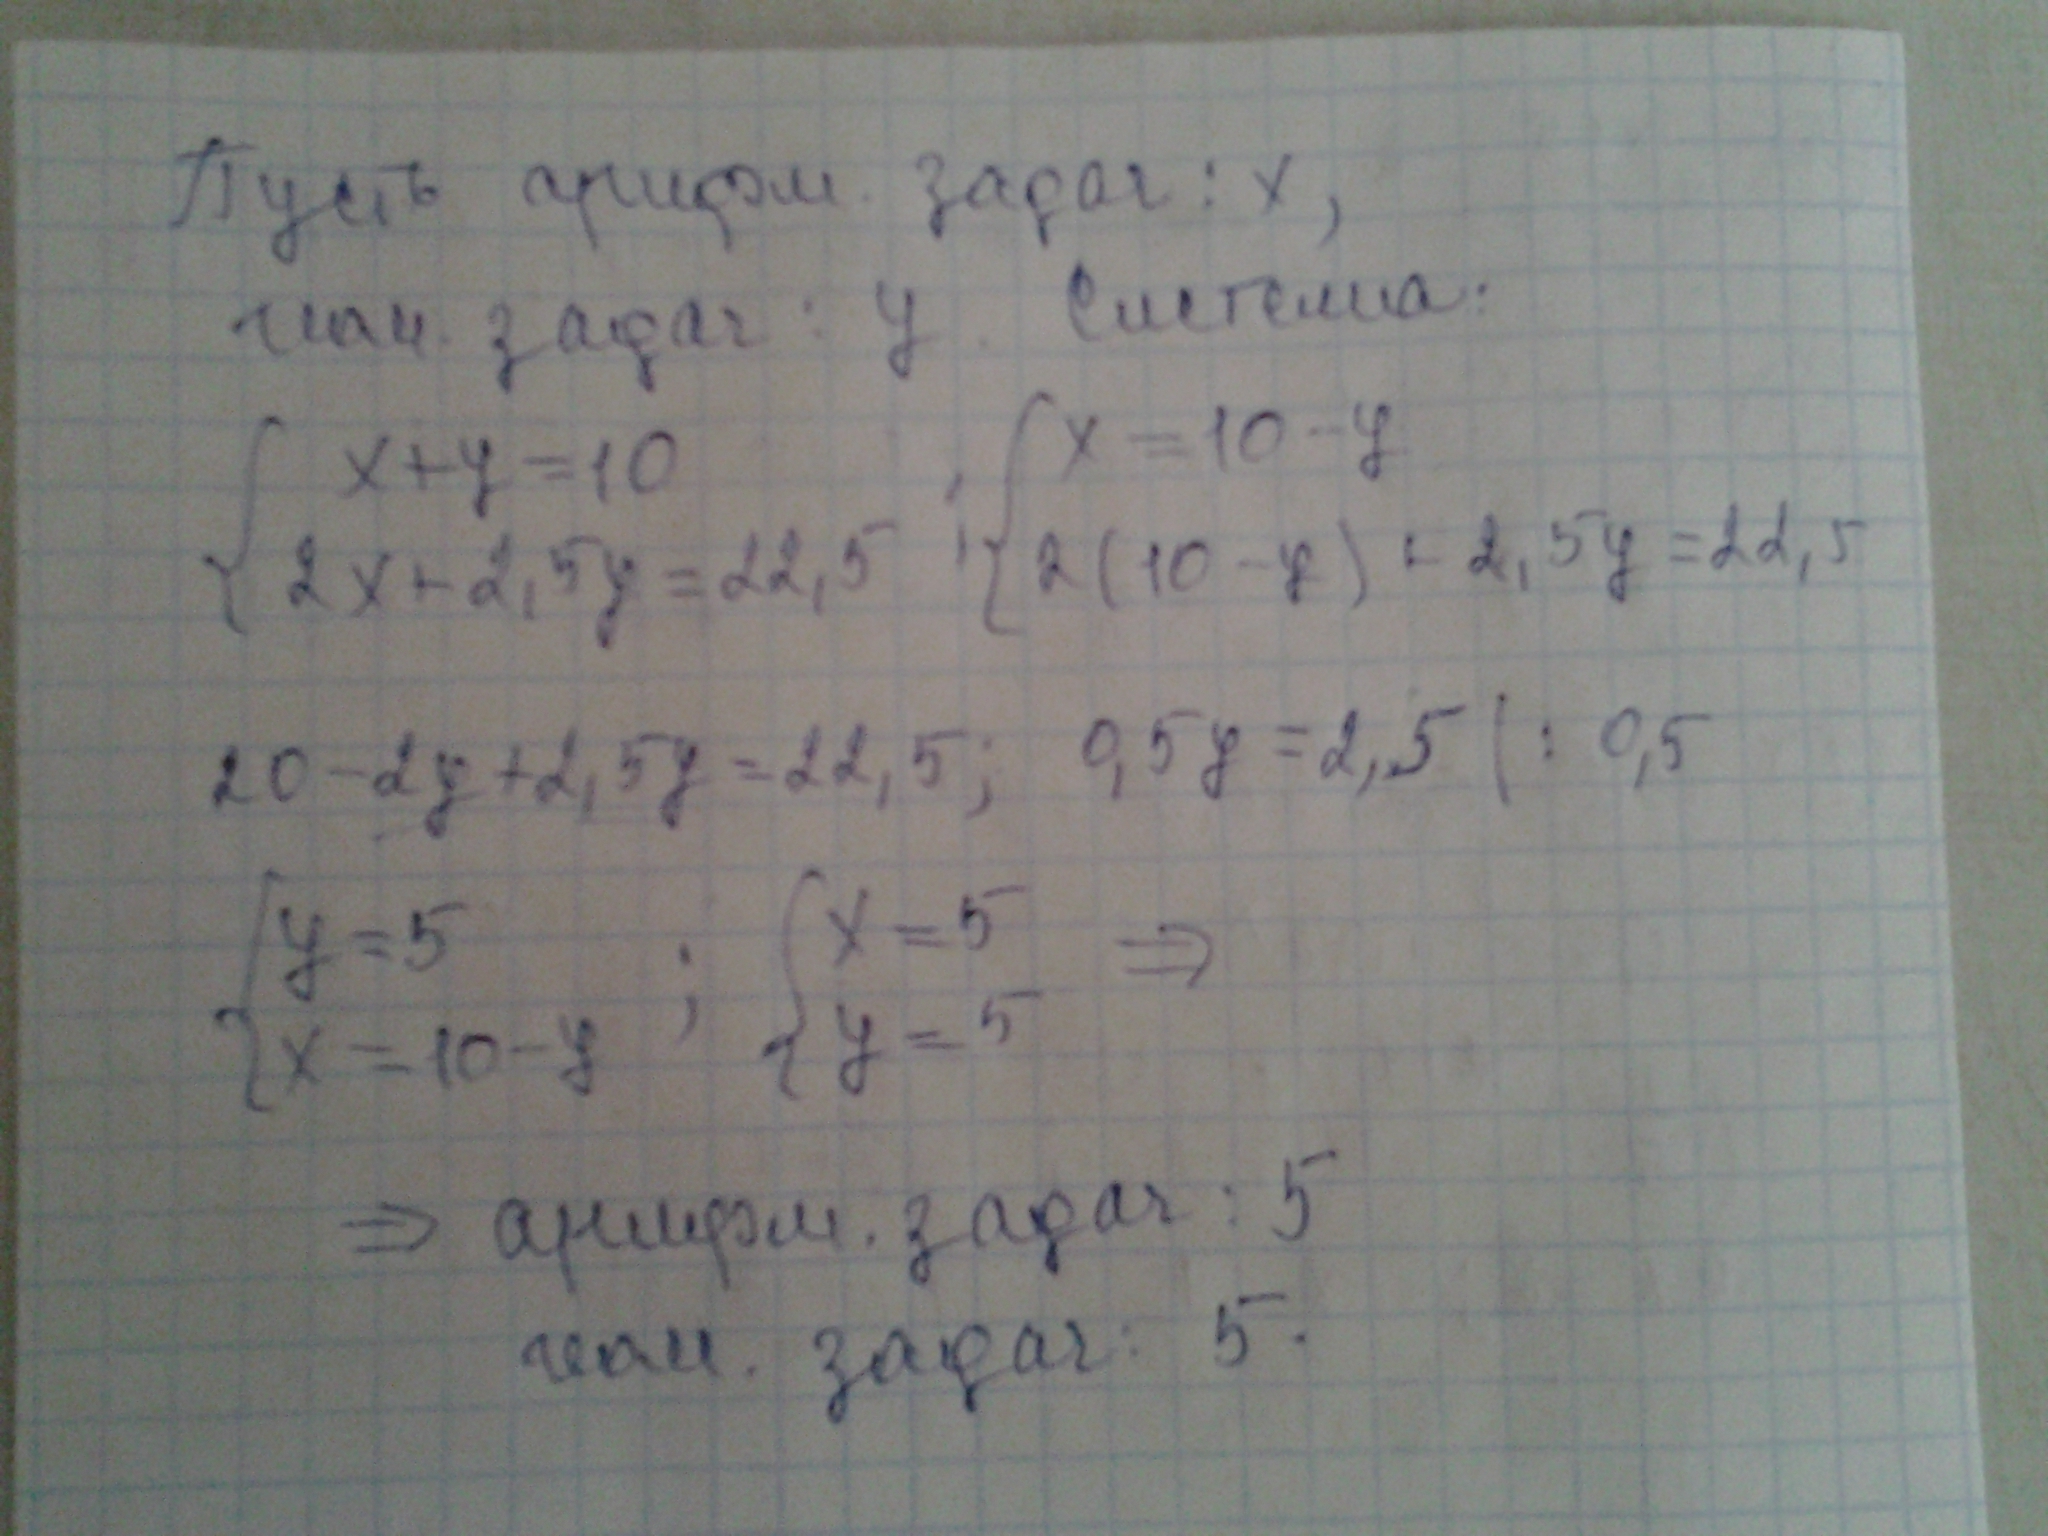 Пусть арифм. задач: x,
задач: y. Система:
{ x+y=10 ; { x=10-y
2x+2,5y=22,5 2(10-y)+2,5y=22,5
20-2y+2,5y=22,5; 0,5y=2,5 |: 0,5
{ y=5 ; { x=5 ⇒
x=10-y y=5
⇒ арифм. задач: 5
задач: 5.